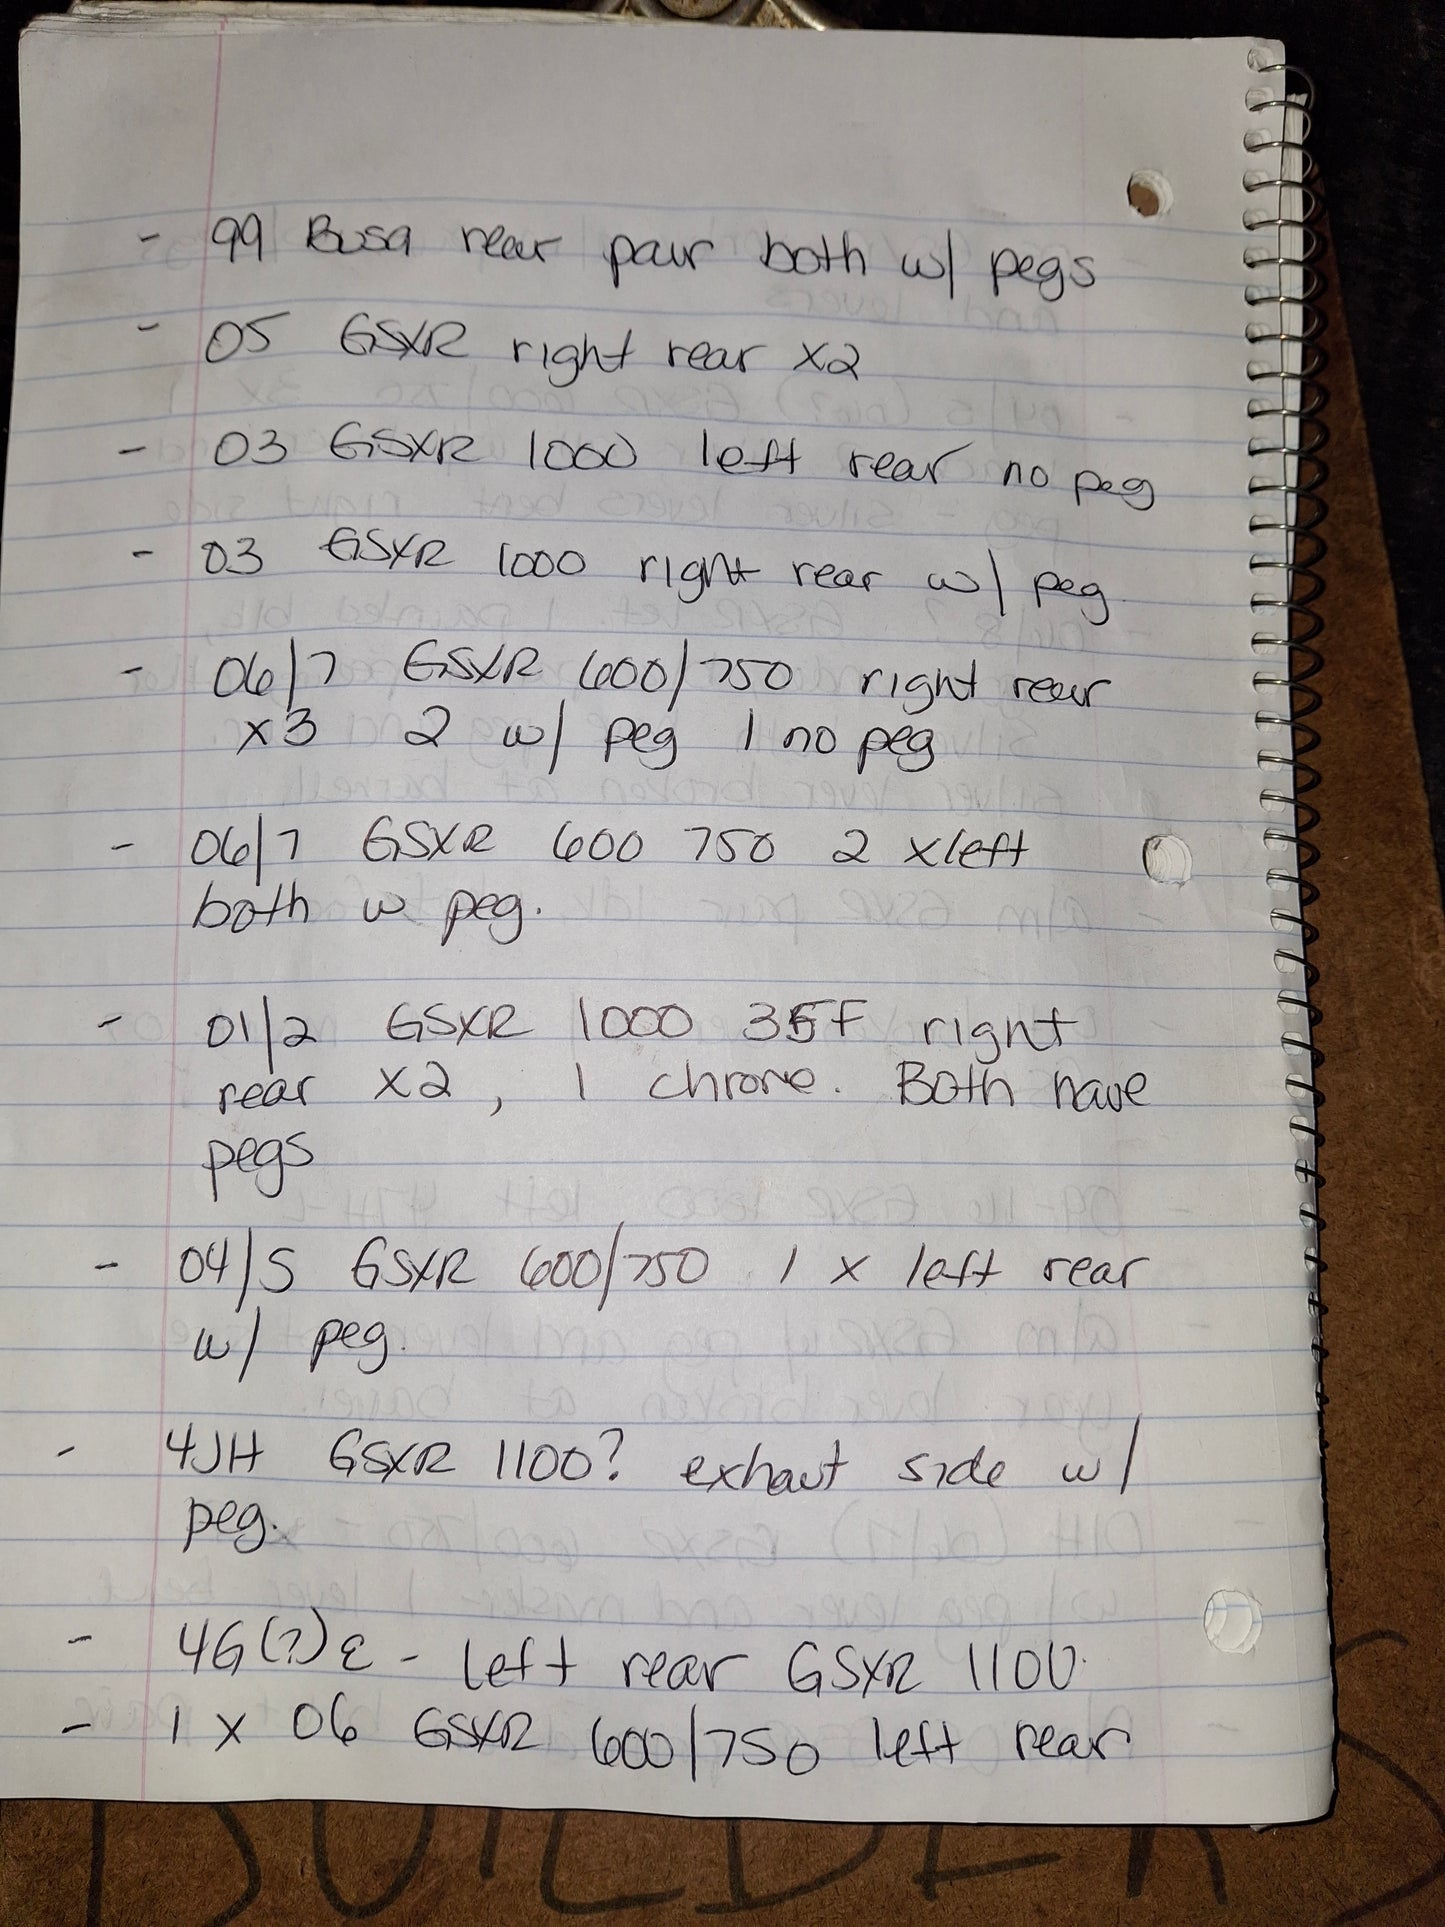 - 99 Busa rear pair both w/ pegs
- 05 GSXR right rear x2
- 03 GSXR 1000 left rear no peg
- 03 GSXR 1000 right rear w/ peg
- 06/7 GSXR 600/750 right rear
x3 2 w/ peg 1 no peg
- 06/7 GSXR 600 750 2 x left
both w peg.
- 01/2 GSXR 1000 35F right
rear x2, 1 chrome. Both have
pegs
- 04/5 GSXR 600/750 1 x left rear
w/ peg.
- 4JH GSXR 1100? exhaut side w/
peg.
- 4G(?)E - left rear GSXR 1100
- 1 x 06 GSXR 600/750 left rear
BUILDERS